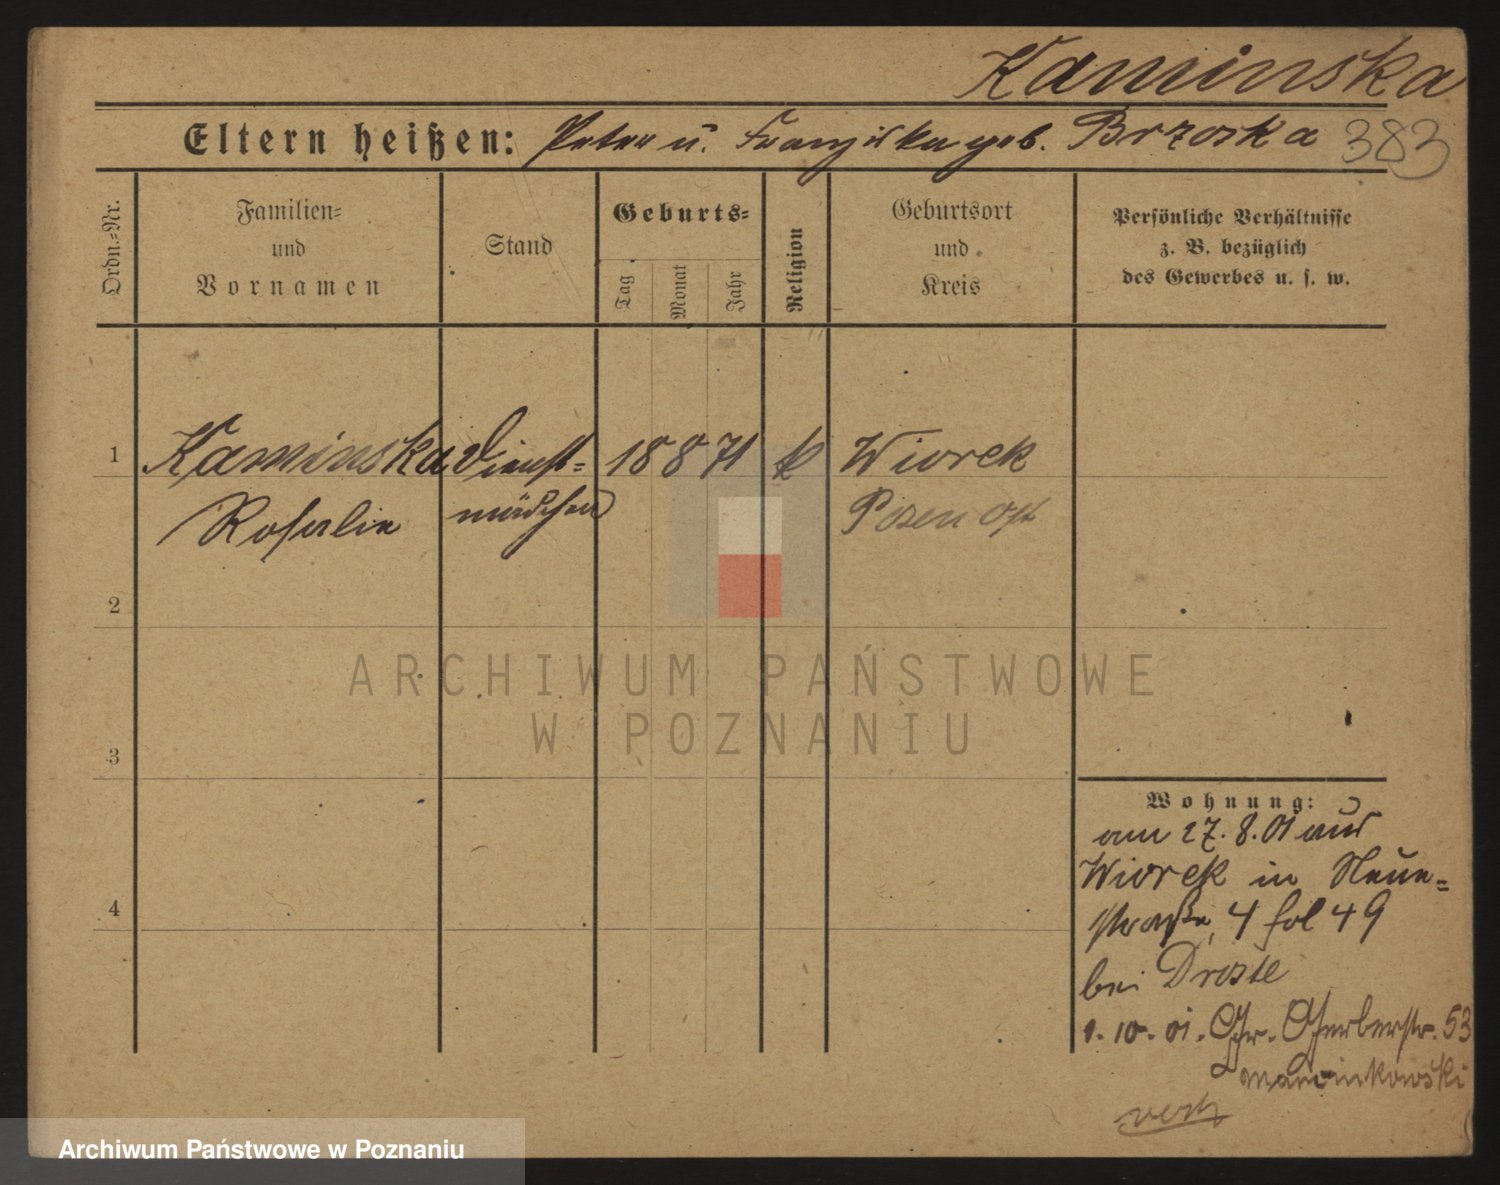 Kaminska
Eltern heißen: Peter u. Franziska geb. Brzoska 383
Ordn.-Nr.
Familien-
und
Vornamen
Stand
Geburts-
Tag
Monat
Jahr
Religion
Geburtsort
und
Kreis
Persönliche Verhältnisse
z. B. bezüglich
des Gewerbes u. s. w.
1 Kaminska Dienst- 18 8 71 k Wiorek
Rosalie mädchen Posen Ost
2
ARCHIWUM PAŃSTWOWE
W POZNANIU
3
Wohnung:
am 27. 8. 01 aus
Wiorek in Neue-
4
straße 4 fol 49
bei Droste
1. 10. 01. Gr. Gerberstr. 53
Marcinkowski
Archiwum Państwowe w Poznaniu